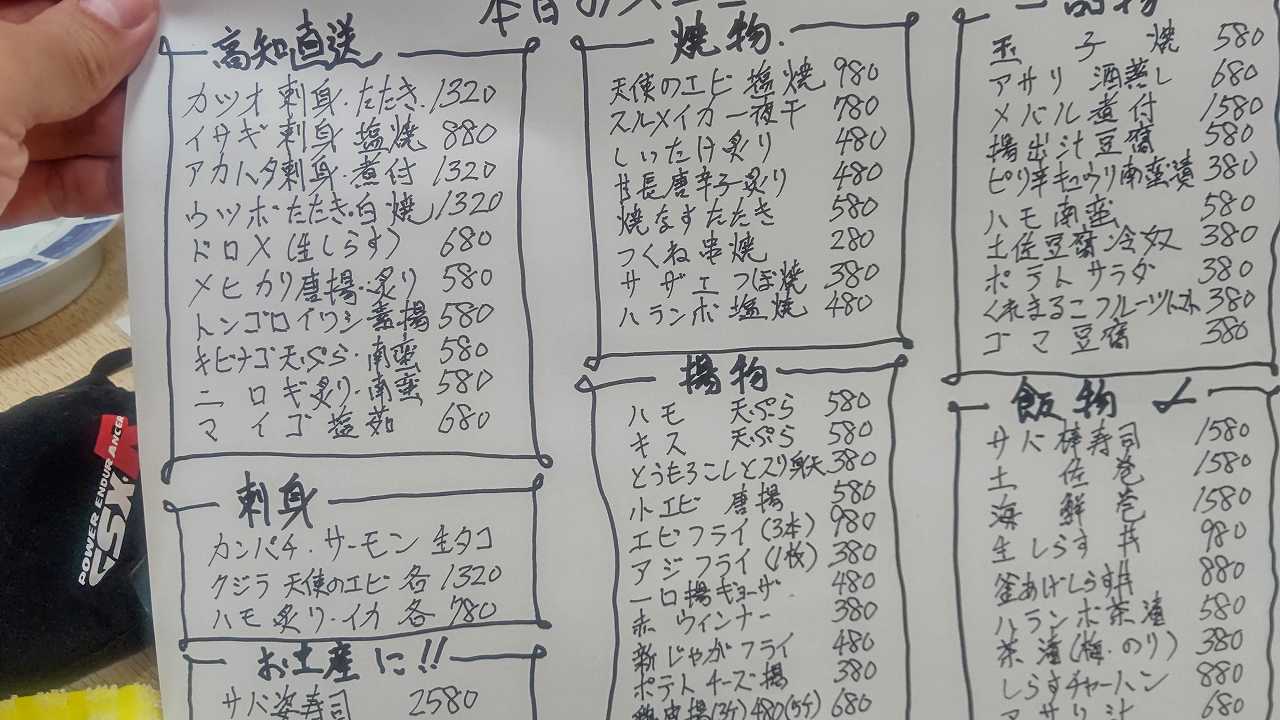 本日のメニュー
高知直送
カツオ刺身・たたき 1320
イサギ刺身 塩焼 880
アカハタ刺身・煮付 1320
ウツボたたき・白焼 1320
ドロメ(生しらす) 680
メヒカリ唐揚・炙り 580
トンゴロイワシ 唐揚 580
キビナゴ天ぷら・南蛮 580
ニロギ炙り・南蛮 580
マイゴ塩茹 680
刺身
カンパチ・サーモン 生タコ
クジラ 天使のエビ 各1320
ハモ炙り・イカ 各780
お土産に!!
サバ姿寿司 2580
焼物
天使のエビ 塩焼 980
スルメイカ一夜干 780
しいたけ炙り 480
甘長唐辛子炙り 480
焼なすたたき 580
つくね串焼 280
サザエつぼ焼 380
ハランボ塩焼 480
揚物
ハモ 天ぷら 580
キス 天ぷら 580
とうもろこしとスリ身天 380
小エビ 唐揚 580
エビフライ(3本) 980
アジフライ(1枚) 380
一口揚ギョーザ 480
赤ウィンナー 380
新じゃがフライ 480
ポテトチーズ揚 380
(3ケ)480(5ケ)680
一品物
玉子焼 580
アサリ 酒蒸し 680
メバル煮付 1580
揚出汁豆腐 580
ピリ辛キュウリ南蛮漬 380
ハモ南蛮 580
土佐豆腐冷奴 380
ポテトサラダ 380
くれまるこフルーツトマト 380
ゴマ豆腐 380
飯物〆
サバ棒寿司 1580
土佐巻 1580
海鮮巻 1580
生しらす丼 980
釜あげしらす丼 880
ハランボ茶漬 580
茶漬(梅・のり) 380
しらすチャーハン 880
アサリ汁 680
POWER ENDURANCER
GSX-R